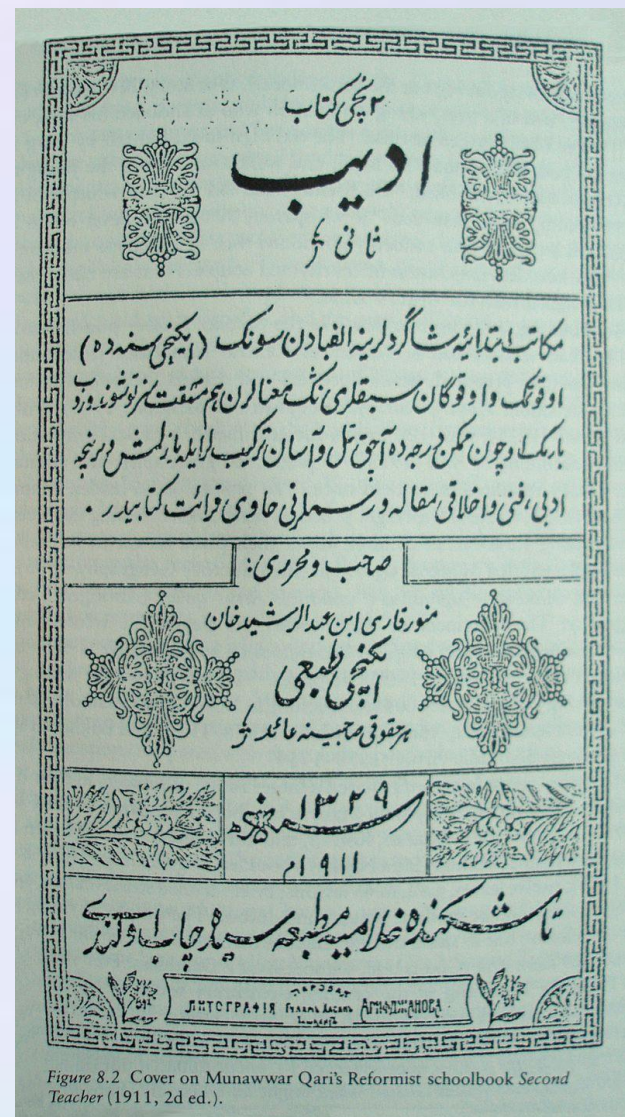 ۲ نچی کتاب
ادیب
ثانی
مکاتب ابتدائیه شاگردلرینه الفبادن سونک (ایکنجی سنه ده)
اوقوتمق و اوقوگان سبقلری نک معنالرن هم مشقت سز توشوندوروب
بارمک اوچون ممکن درجه ده آچق تل و آسان ترکیب لر ایله یازلمش و برنچه
ادبی، فنی و اخلاقی مقاله و رسملرنی حاوی قرائت کتابیدر.
صاحب و محرری:
منور قاری ابن عبدالرشید خان
ایکنچی طبعی
هر حقوقی صاحبینه عائد
سنه ۱۳۲۹
۱۹۱۱م
تاشکنده غلامیه مطبعه سیده چاپ اولندی
ЛИТОГРАФІЯ Гулямъ Хасанъ
Figure 8.2 Cover on Munawwar Qari's Reformist schoolbook Second
Teacher (1911, 2d ed.).